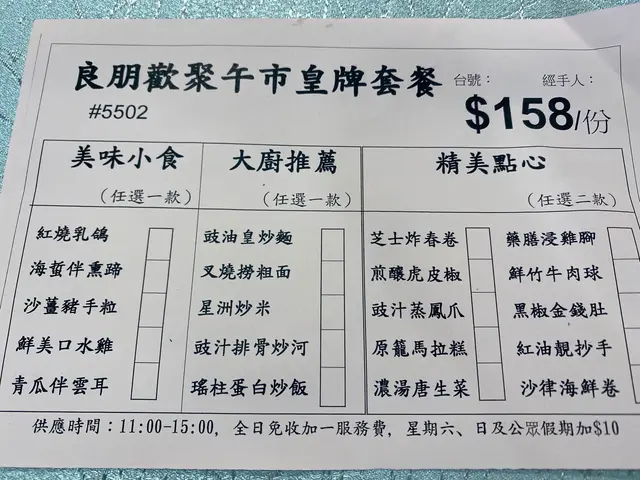 良朋歡聚午市皇牌套餐 台號： 經手人：
#5502 $158/份
美味小食 大廚推薦 精美點心
（任選一款） （任選一款） （任選二款）
紅燒乳鴿 豉油皇炒麵 芝士炸春卷 藥膳浸雞腳
海蜇伴熏蹄 叉燒撈粗面 煎釀虎皮椒 鮮竹牛肉球
沙薑豬手粒 星洲炒米 豉汁蒸鳳爪 黑椒金錢肚
鮮美口水雞 豉汁排骨炒河 原籠馬拉糕 紅油靚抄手
青瓜伴雲耳 瑤柱蛋白炒飯 濃湯唐生菜 沙律海鮮卷
供應時間：11:00-15:00, 全日免收加一服務費, 星期六、日及公眾假期加$10